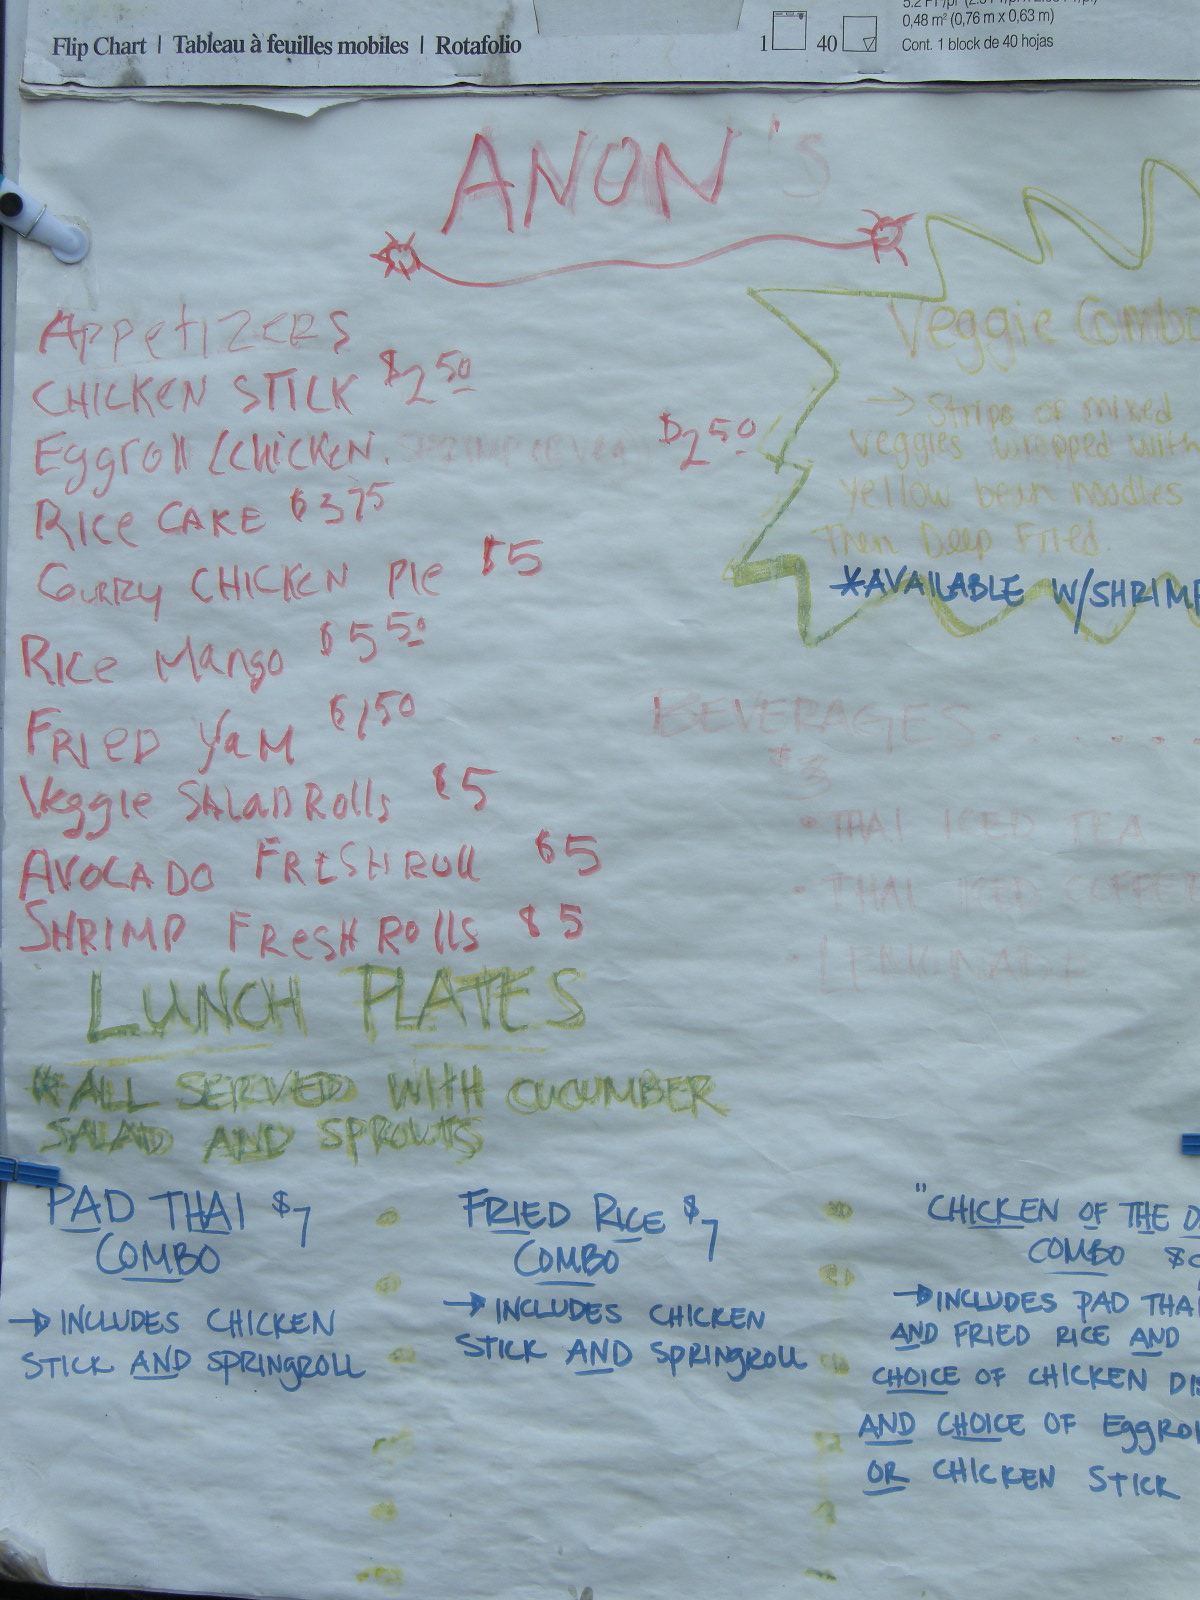 Flip Chart | Tableau à feuilles mobiles | Rotafolio
1 40
0,48 m² (0,76 m x 0,63 m)
Cont. 1 block de 40 hojas
ANON's
Appetizers
CHICKEN STICK $2.50
Eggroll (chicken, SHRIMP or Veg) $2.50
Rice CAKE $3.75
Curry CHICKEN Pie $5
Rice Mango $5.50
FRIED YAM $1.50
Veggie SALAD Rolls $5
AVOCADO FRESH ROLL $5
SHRIMP FRESH ROLLS $5
Veggie Combo
→ Strips of mixed
Veggies wrapped with
yellow bean noodles
Then Deep Fried.
*AVAILABLE W/SHRIMP
BEVERAGES........
$3
• THAI ICED TEA
• THAI ICED COFFEE
• LEMONADE
LUNCH PLATES
*ALL SERVED WITH CUCUMBER
SALAD AND SPROUTS
PAD THAI $7
COMBO
→ INCLUDES CHICKEN
STICK AND SPRINGROLL
FRIED RICE $7
COMBO
→ INCLUDES CHICKEN
STICK AND SPRINGROLL
"CHICKEN OF THE D
COMBO $
→ INCLUDES PAD THAI
AND FRIED RICE AND
CHOICE OF CHICKEN DIS
AND CHOICE OF Eggrol
OR CHICKEN STICK